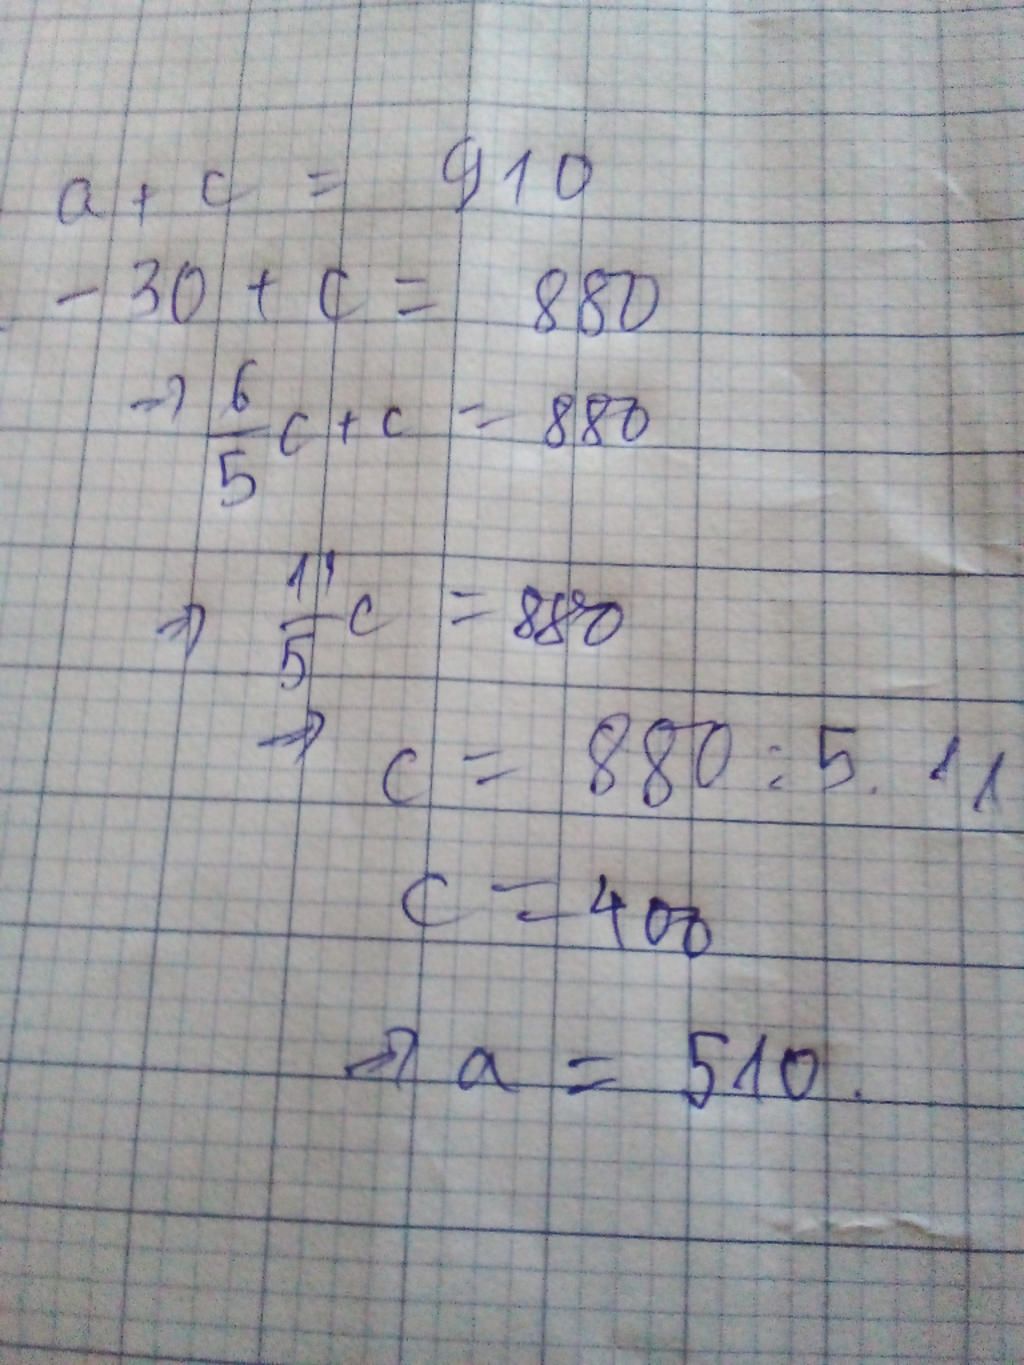 a + c = 910
- 30 + c = 880
→ 6/5 c + c = 880
⇒ 11/5 c = 880
⇒ c = 880 : 5 . 11
c = 400
⇒ a = 510.